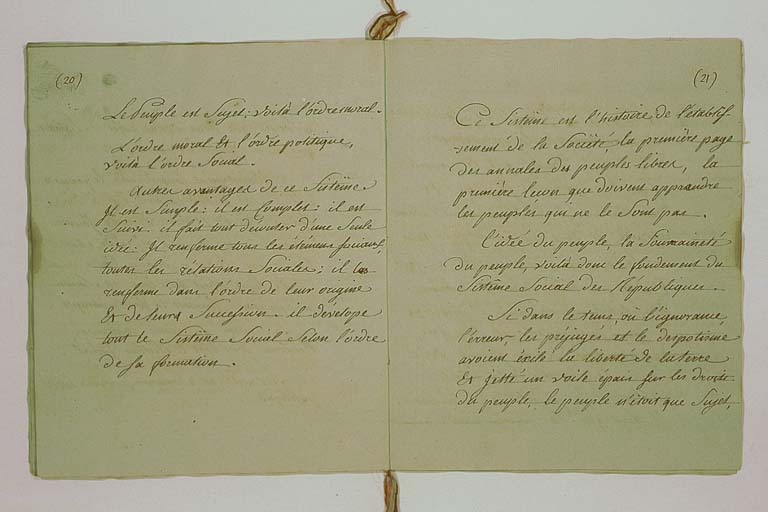 (20)
Le Peuple est Sujet: voilà l'ordre moral.
L'ordre moral Et l'ordre politique,
voilà l'ordre Social.
Autres avantages de ce Sistême
Il est Simple: il est Complet: il est
Suivi. il fait tout découler d'une Seule
idée: Il renferme tous les élémens sociaux,
toutes les rélations Sociales: il les
renferme dans l'ordre de leur origine
Et de leurs Succession. il dévelope
tout le Sistême Social Selon l'ordre
de sa formation.
(21)
Ce Sistême est l'histoire de l'établis-
sement de la Société, la première page
des annales des peuples libres, la
première leçon que doivent apprendre
les peuples qui ne le Sont pas.
L'idée du peuple, la Souveraineté
du peuple, voilà donc le fondement du
Sistême Social des Républiques.
Si dans le tems, où l'ignorance,
l'erreur, les préjugés et le despotisme
avoient éxilé la liberté de la terre
Et jetté un voile épais sur les droits
du peuple, le peuple n'étoit que Sujet,